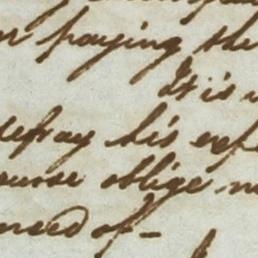 paying the
It is
defray his
course oblige
need of -